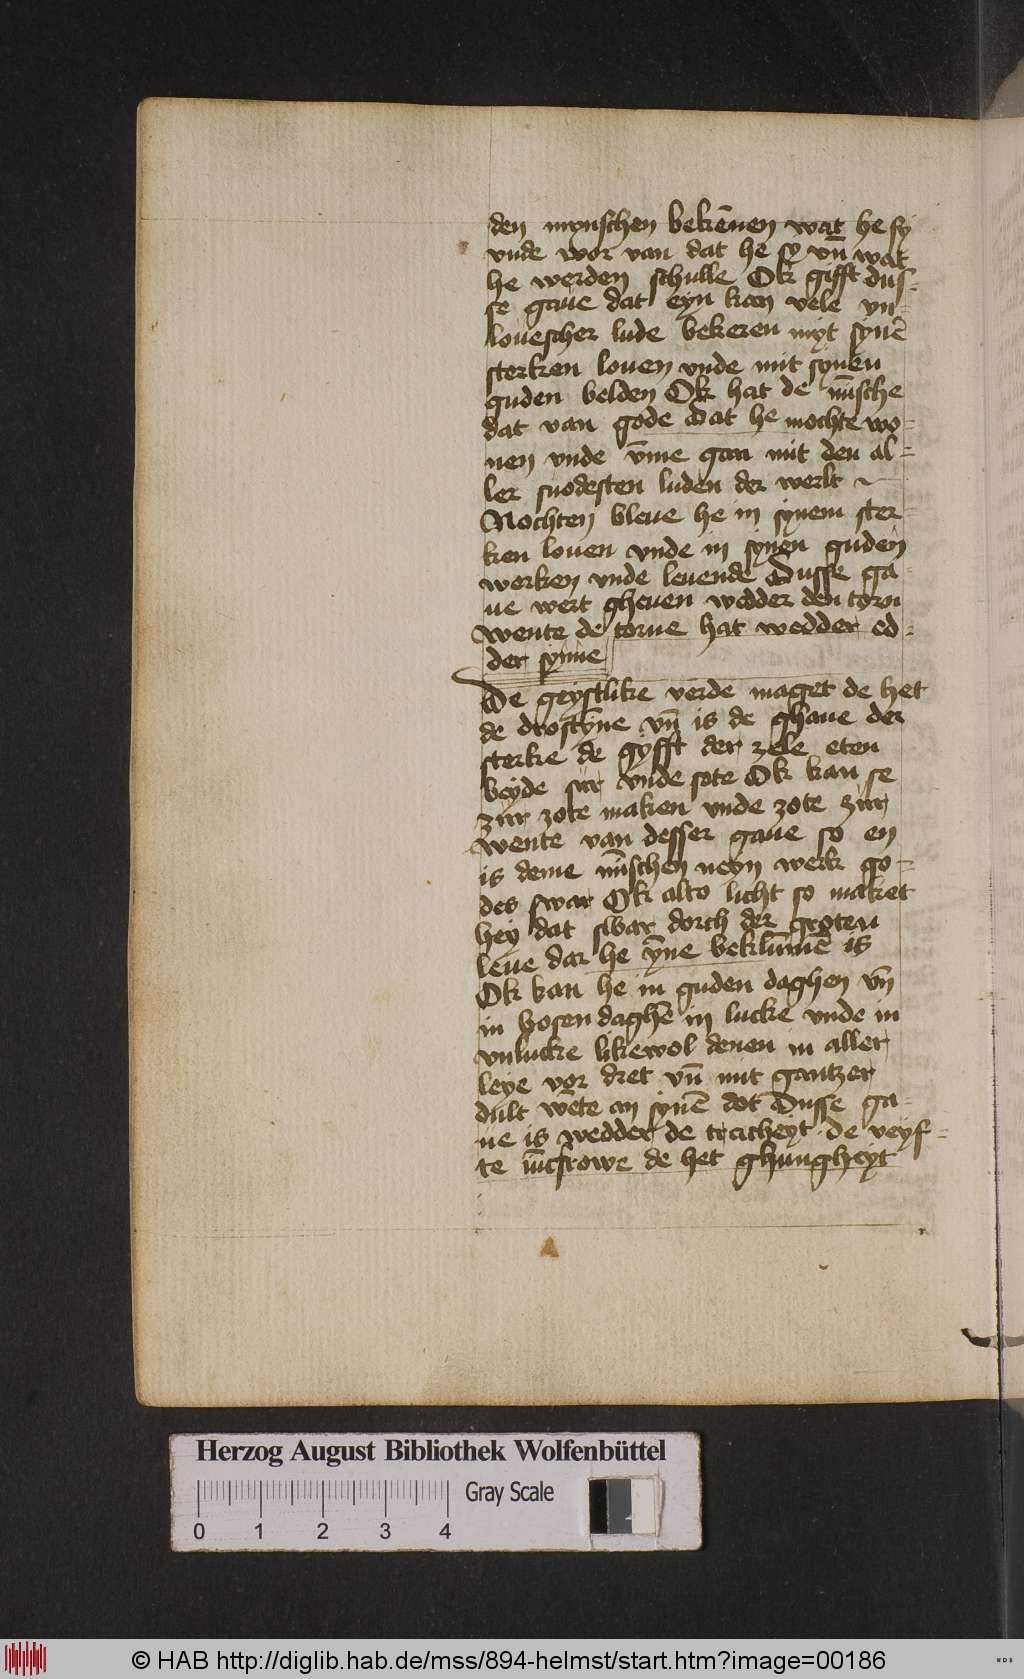 den mynschen bekēnen wat he sy
vnde wor van dat he sy vn̄ wat
he werden schulle Ok gifft dus-
se gaue dat eyn kan vele vn-
louescher lude bekeren myt synē
sterken louen vnde mit synen
guden belden Ok hat de mīsche
dat van gode dat he mochte wo-
nen vnde v̄me gan mit den al-
ler snodesten luden der werlt
Nochten bleue he in synem ster-
ken louen vnde in synen guden
werken vnde leuende Dusse ga-
ue wert gheuen wedder den torn
wente de torne hat wedder ed-
der synne
De geystlike verde maget de het
de drostyne vn̄ is de ghaue der
sterke de gyfft der zele eten
beyde sur vnde sote Ok kan se
zur zote maken vnde zote zur
wente van desser gaue so en
is deme mīschen neyn werk go-
des swar Ok alto licht so maket
hey dat swar dorch der groten
leue dar he ȳne beklūmē is
Ok kan he in guden daghen vn̄
in bosen daghē in lucke vnde in
vnlucke likewol denen in aller
leye vor dret vn̄ mit gantzer
dult wēte an synē dot Dusse ga-
ue is wedder de tracheyt. de veyf-
te iūcfrowe de het ghungheyt
Herzog August Bibliothek Wolfenbüttel
Gray Scale
0 1 2 3 4
© HAB http://diglib.hab.de/mss/894-helmst/start.htm?image=00186